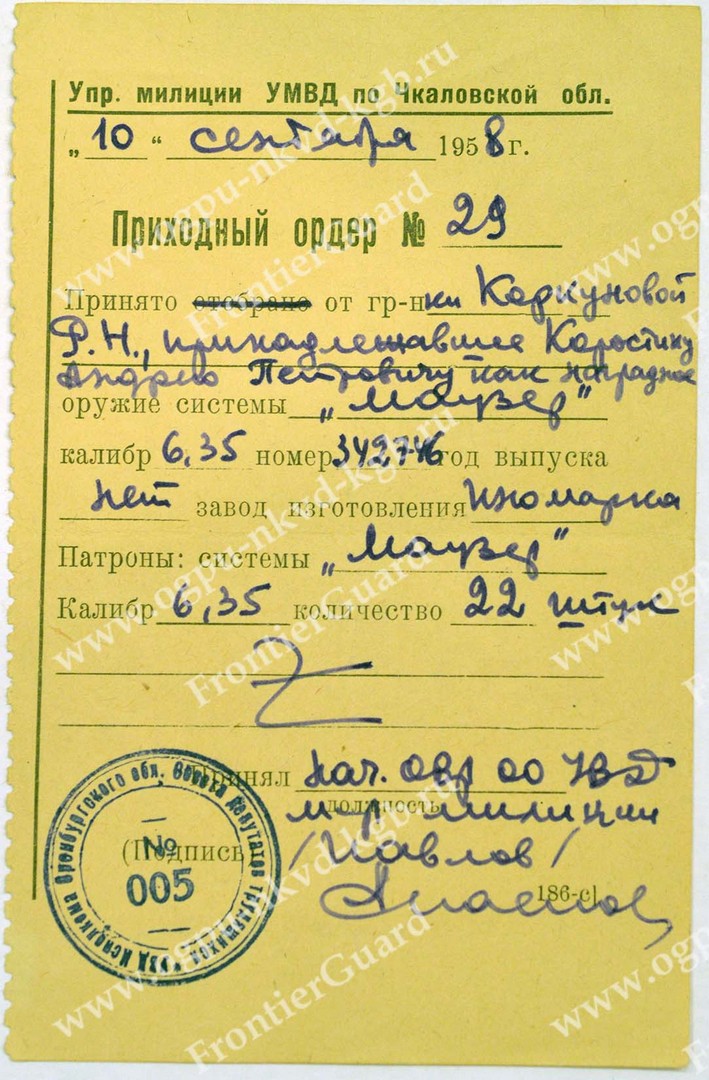 Упр. милиции УМВД по Чкаловской обл.
„10“ сентября 1958 г.
Приходный ордер № 29
Принято отобрано от гр-нки Коркуновой
Р.Н., принадлежавшие Коростину
Андрею Петровичу как наградное
оружие системы „Маузер"
калибр 6,35 номер 342746 год выпуска
нет завод изготовления Иномарка
Патроны: системы „Маузер"
Калибр 6,35 количество 22 штук
Принял нач. ОВР ОО УВД
должность
майор милиции
(Подпись) /Павлов/
186-с
УВД Исполкома Оренбургского обл. Совета депутатов трудящихся
№
005
www.ogpu-nkvd-kgb.ru
FrontierGuard